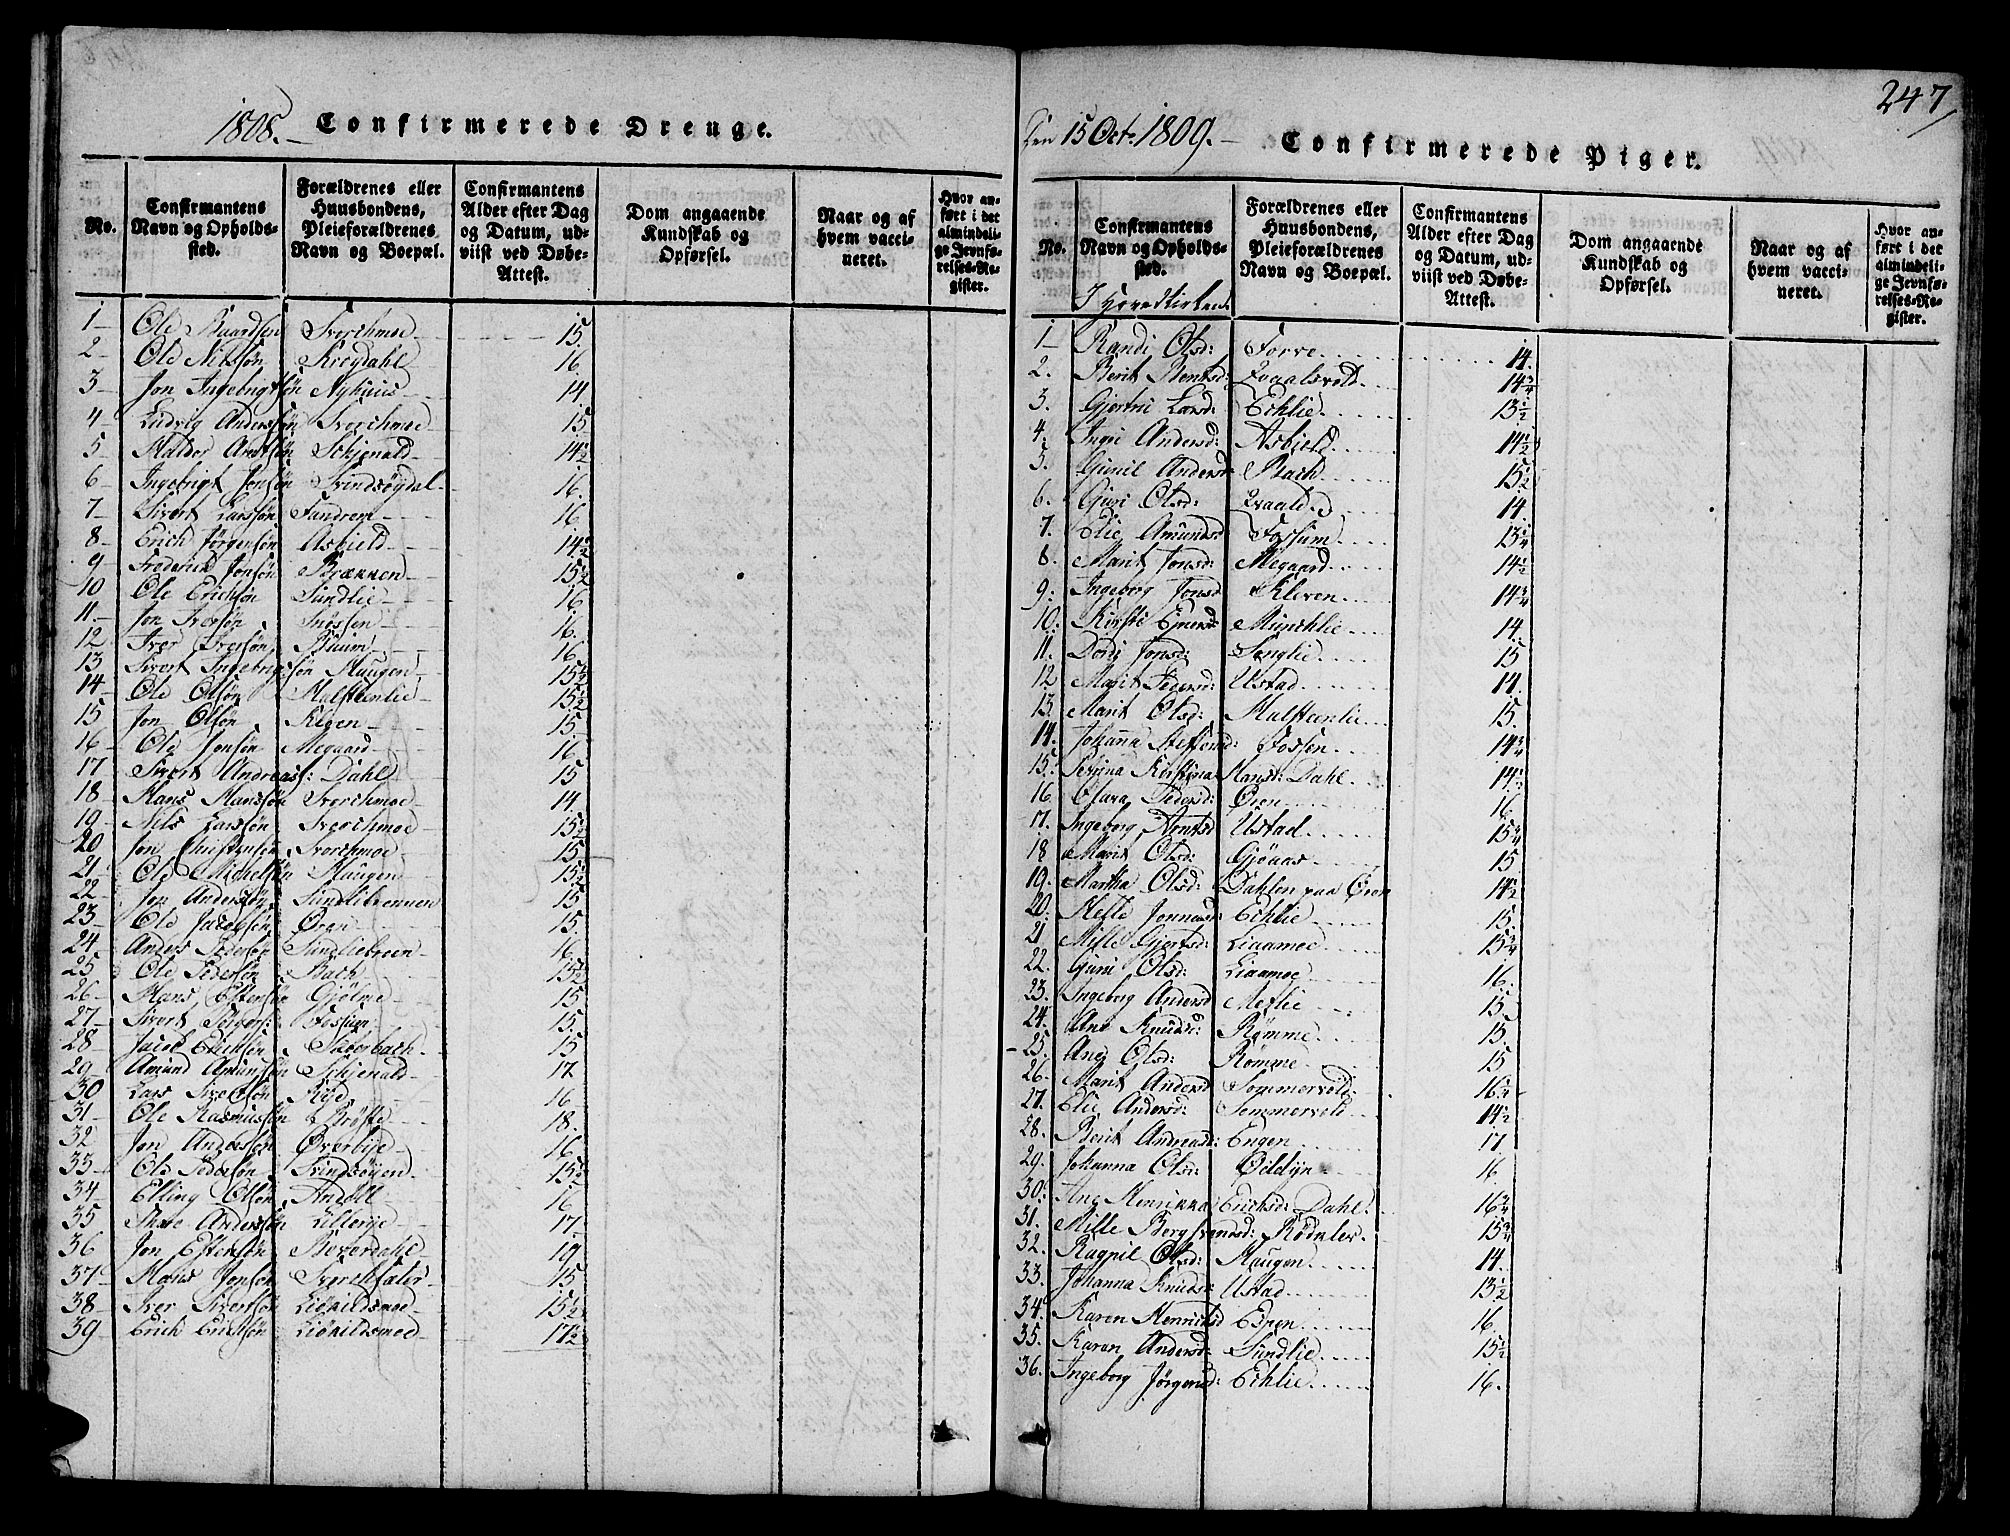 1808.— Confirmerede Drenge.
No.
Confirmantens Navn og Opholdssted.
Forældrenes eller Huusbondens, Pleieforældrenes Navn og Boepæl.
Confirmantens Alder efter Dag og Datum, udviist ved Døbe-Attest.
Dom angaaende Kundskab og Opførsel.
Naar og af hvem vaccineret.
Hvor anført i det almindelige Jevnførelses-Register.
1 Ole Baardsen Svorchmoe 15.
2 Ole Nilssøn Krogdahl 16.
3 Jon Ingebrigtsøn Nyhuus 14
4 Ludvig Anderssøn Svorchmoe 15
5 Haldor Arntsøn Schjenald 14½
6 Ingebrigt Jonsøn Svindsøgdal 16.
7 Sivert Larssøn Sundrem 16
8 Erich Jørgensøn Asbield 14½
9 Frederich Jonsøn Brækken 15½
10 Ole Erichsøn Sundlie 16
11 Jon Iversøn Snössen 16.
12 Iver Iversøn Buum 16
13 Sivert Ingebrigsøn Haugen 15½
14 Ole Olsøn Halsteenlie 15½
15 Jon Olsøn Kleven 15
16 Ole Jonsøn Megaard 16
17 Sivert Andreasf: Dahl 15
18 Hans Hanssøn Svorchmoe 14.
19 Nils Larssøn Svorchmoe 15½
20 Jon Christensøn Svorchmoe 15
21 Ole Michelsøn Haugen 15½
22 Jon Andersøn Sundlibrennen 15
23 Ole Jacobsøn Øren 15.
24 Anders Pedersøn Sundliebreen 16
25 Ole Pedersøn Bach 15½
26 Hans Estensøn Gjølme 15
27 Sivert Børgers: Fossum 15.
28 Jacob Erichsøn Sæterbach 15
29 Amund Amundsøn Schjenald 17
30 Lars Sivertsøn Ryd 16
31 Ole Rasmussøn Brøste 18.
32 Jon Anderssøn Øverbye 16
33 Ole Pedersøn Svindsøyen 15½
34 Elling Olsøn Andøll 16
35 Thore Anderssøn Lillerye 17.
36 Jon Estensøn Beverdahl 19
37 Hans Jonsøn Svorchsæter 15
38 Iver Sivertsøn Liøkildsmoe 15½
39 Erich Erichsøn Liøkildsmoe 17½
247
Den 15 Oct. 1809.— Confirmerede Piger.
No.
Confirmantens Navn og Opholdssted.
Forældrenes eller Huusbondens, Pleieforældrenes Navn og Boepæl.
Confirmantens Alder efter Dag og Datum, udviist ved Døbe-Attest.
Dom angaaende Kundskab og Opførsel.
Naar og af hvem vaccineret.
Hvor anført i det almindelige Jevnførelses-Register.
I Hovedkirken
1 Randi Olsd: Forve 14.
2. Berit Bentsd: Evaalsvold 14¾
3. Gjertru Larsd: Echlie 13½
4. Ingri Andersd: Asbield 14½
5. Gunil Andersd Bach 15½
6. Guri Olsd: Evaald 14
7. Elie Amundsd Fossum 13¼
8. Marit Jonsd: Megaard 14½
9. Ingeborg Jonsd Kleven 14¾
10. Kirsti Ejnersd Munchlie 14.
11. Dordi Jonsd: Songlie 15
12 Marit Pedersd: Ustad 14
13. Marit Olsd: Halsteenlie 15.
14. Johanna Steffensd: Fossen 14¾
15. Petrina Kirstina Hansd: Dahl 14½
16. Olava Pedersd: Øren 16
17. Ingeborg Arntsd Ustad 15¾
18 Marit Olsd: Gjønas 15
19. Martha Olsd: Dahlen paa Øren 14½
20. Helle Jonnasd: Echlie 15.
21 Mille Gjertsd: Liaamoe 15¾
22. Guri Olsd: Liaamoe 16.
23. Ingeborg Andersd Meslie 15.
24. Ane Knudsd: Rømme 15.
25. Ane Olsd: Rømme 15
26. Marit Andersd Sommervold 16¼
27. Elie Andersd: Sommervold 14½
28. Berit Andreasd: Engen 17
29. Johanna Olsd: Øeldyn 16
30. Ane Henrikka Erichsd: Dahl 16¾
31. Mille Bergsvendsd: Rødales 15¾
32. Ragnil Olsd: Haugen 14.
33. Johanna Knudsd: Ustad 13½
34. Karen Henrichsd Espen 16.
35. Karen Andersd: Sundlie 15½
36. Ingeborg Jørgensd: Echlie 16.